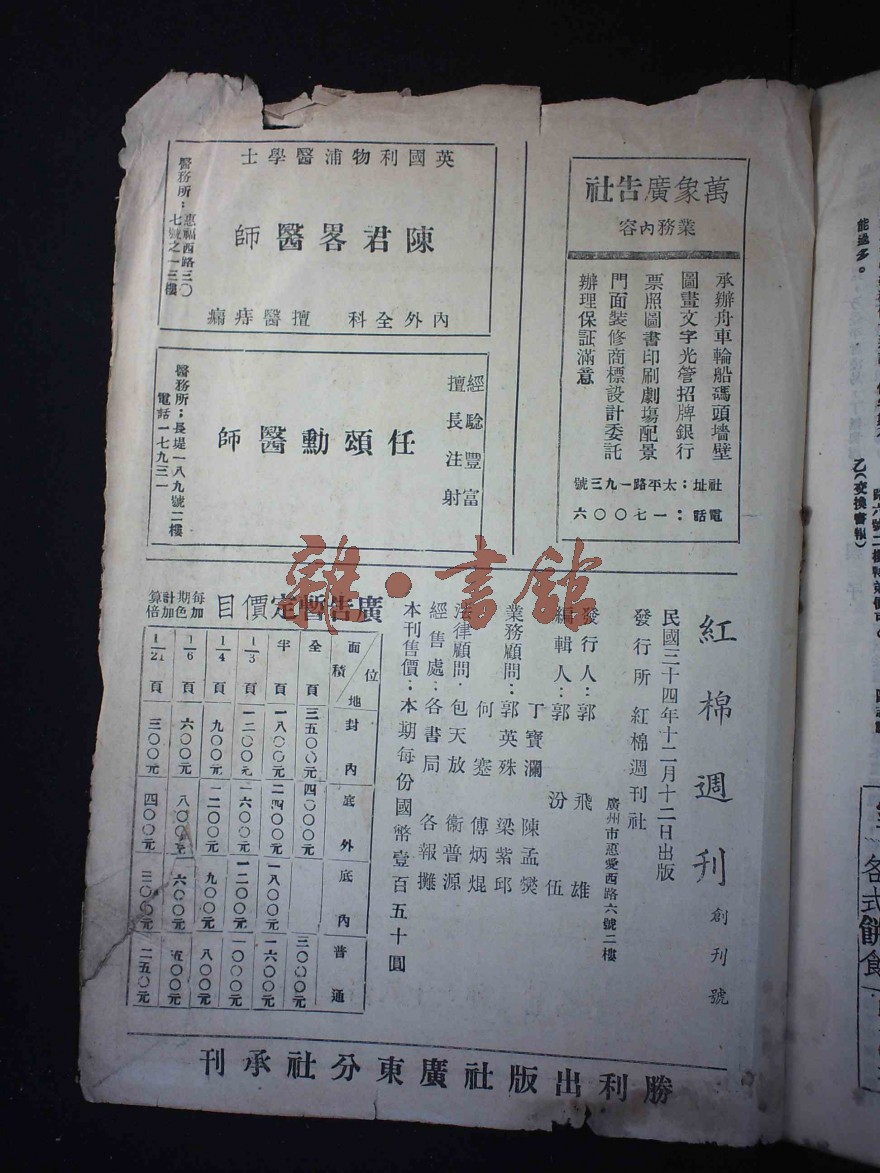 萬象廣告社
業務內容
承辦舟車輪船碼頭墻壁
圖畫文字光管招牌銀行
票照圖書印刷劇塲配景
門面裝修商標設計委託
辦理保証滿意
社址：太平路一九三號
電話：一七〇〇六
英國利物浦醫學士
陳君畧醫師
內外全科 擅醫痔痲
醫務所：惠福西路三〇
七號之一三樓
經驗豐富
擅長注射
任頌勳醫師
醫務所：長堤一八九號二樓
電話一七九三一
紅棉週刊 創刊號
民國三十四年十二月十二日出版
發行所 紅棉週刊社
廣州市惠愛西路六號二樓
發行人：郭飛雄
編輯人：郭汾伍
丁寶瀾 陳孟爕
業務顧問：郭英殊 梁紫邱
何蹇 傅炳焜
法律顧問：包天放 衞普源
經售處：各書局 各報攤
本刊售價：本期每份國幣壹百五十圓
廣告暫定價目
每期計算
加色加倍
位地 面積 封內 底外 底內 普通
全頁 三五〇〇元 四〇〇〇元 三〇〇〇元
半頁 一八〇〇元 二四〇〇元 一八〇〇元 一六〇〇元
1/3頁 一二〇〇元 一六〇〇元 一二〇〇元 一〇〇〇元
1/4頁 九〇〇元 一二〇〇元 九〇〇元 八〇〇元
1/6頁 六〇〇元 八〇〇元 六〇〇元 五〇〇元
1/21頁 三〇〇元 四〇〇元 三〇〇元 二五〇元
勝利出版社廣東分社承刊
雜·書館
能過多。
乙（交換書報）
各式餅食